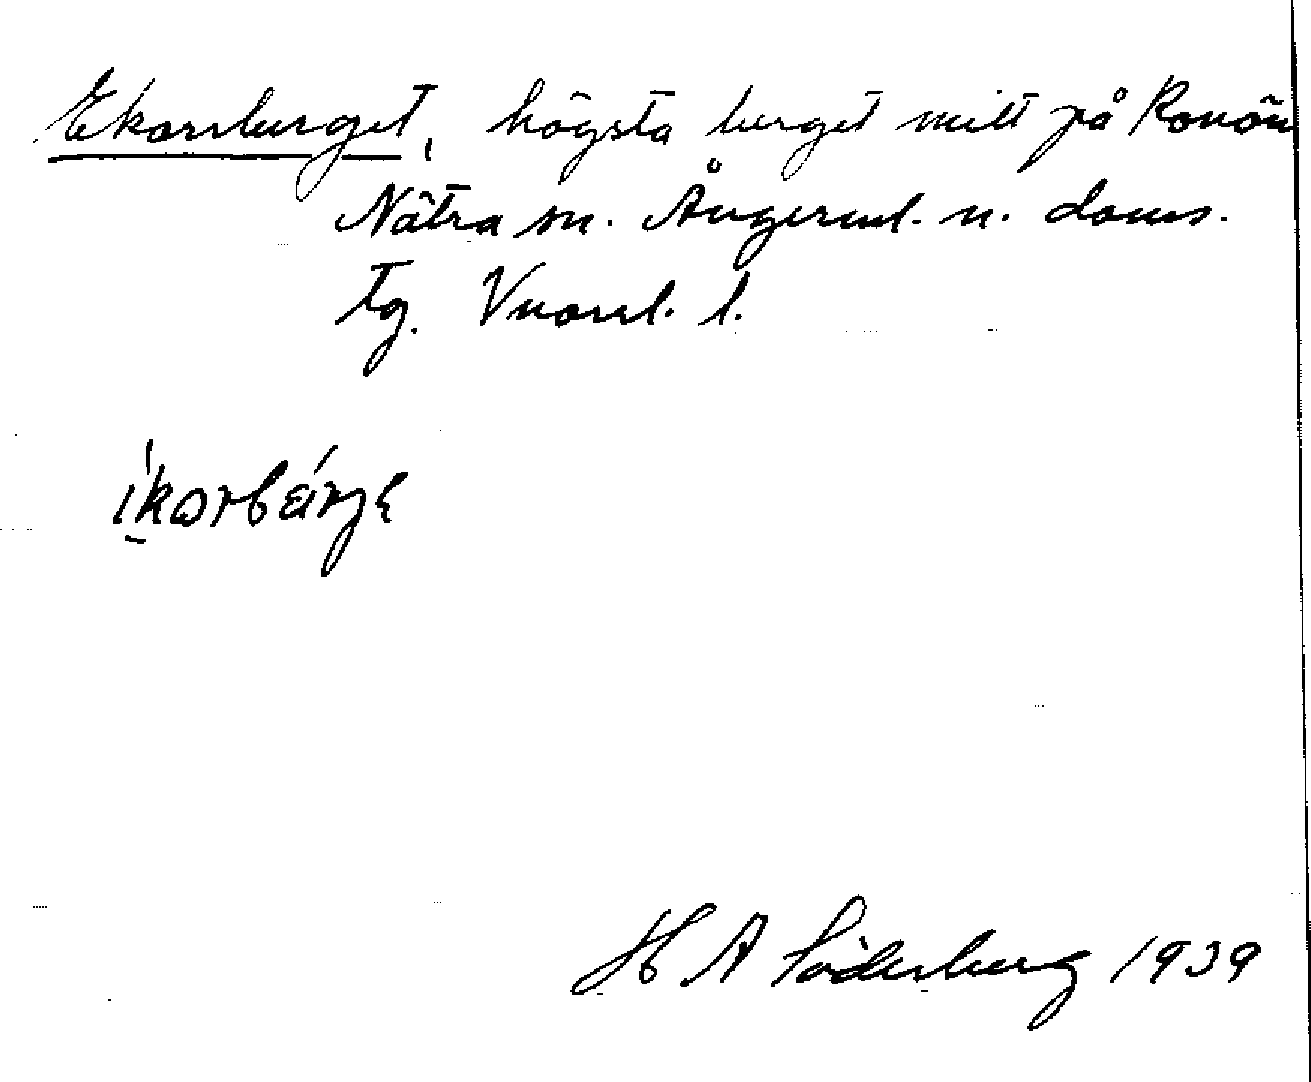 Ekorrberget, högsta berget mitt på Ronön
Nätra sn. Ångerml. n. doms.
Västernorrl. l.
H A Söderberg 1939